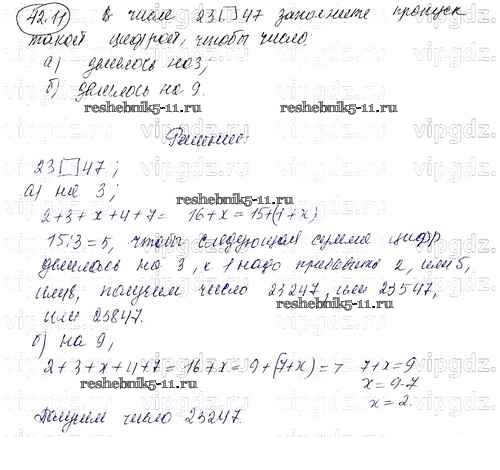 42.11 В числе 23□47 заполните пропуск
такой цифрой, чтобы число:
а) делилось на 3;
б) делилось на 9.
reshebnik5-11.ru reshebnik5-11.ru
Решение:
23□47;
а) на 3;
reshebnik5-11.ru
2+3+x+4+7= 16+x=15+(1+x)
15:3=5, чтобы следующая сумма цифр
делилась на 3, к 1 надо прибавить 2, или 5,
или 8, получим число 23247, или 23547,
reshebnik5-11.ru
или 23847.
б) на 9,
2+3+x+4+7=16+x=9+(7+x)=7 7+x=9
reshebnik5-11.ru
x=9-7
reshebnik5-11.ru
x=2.
Получим число 23247.